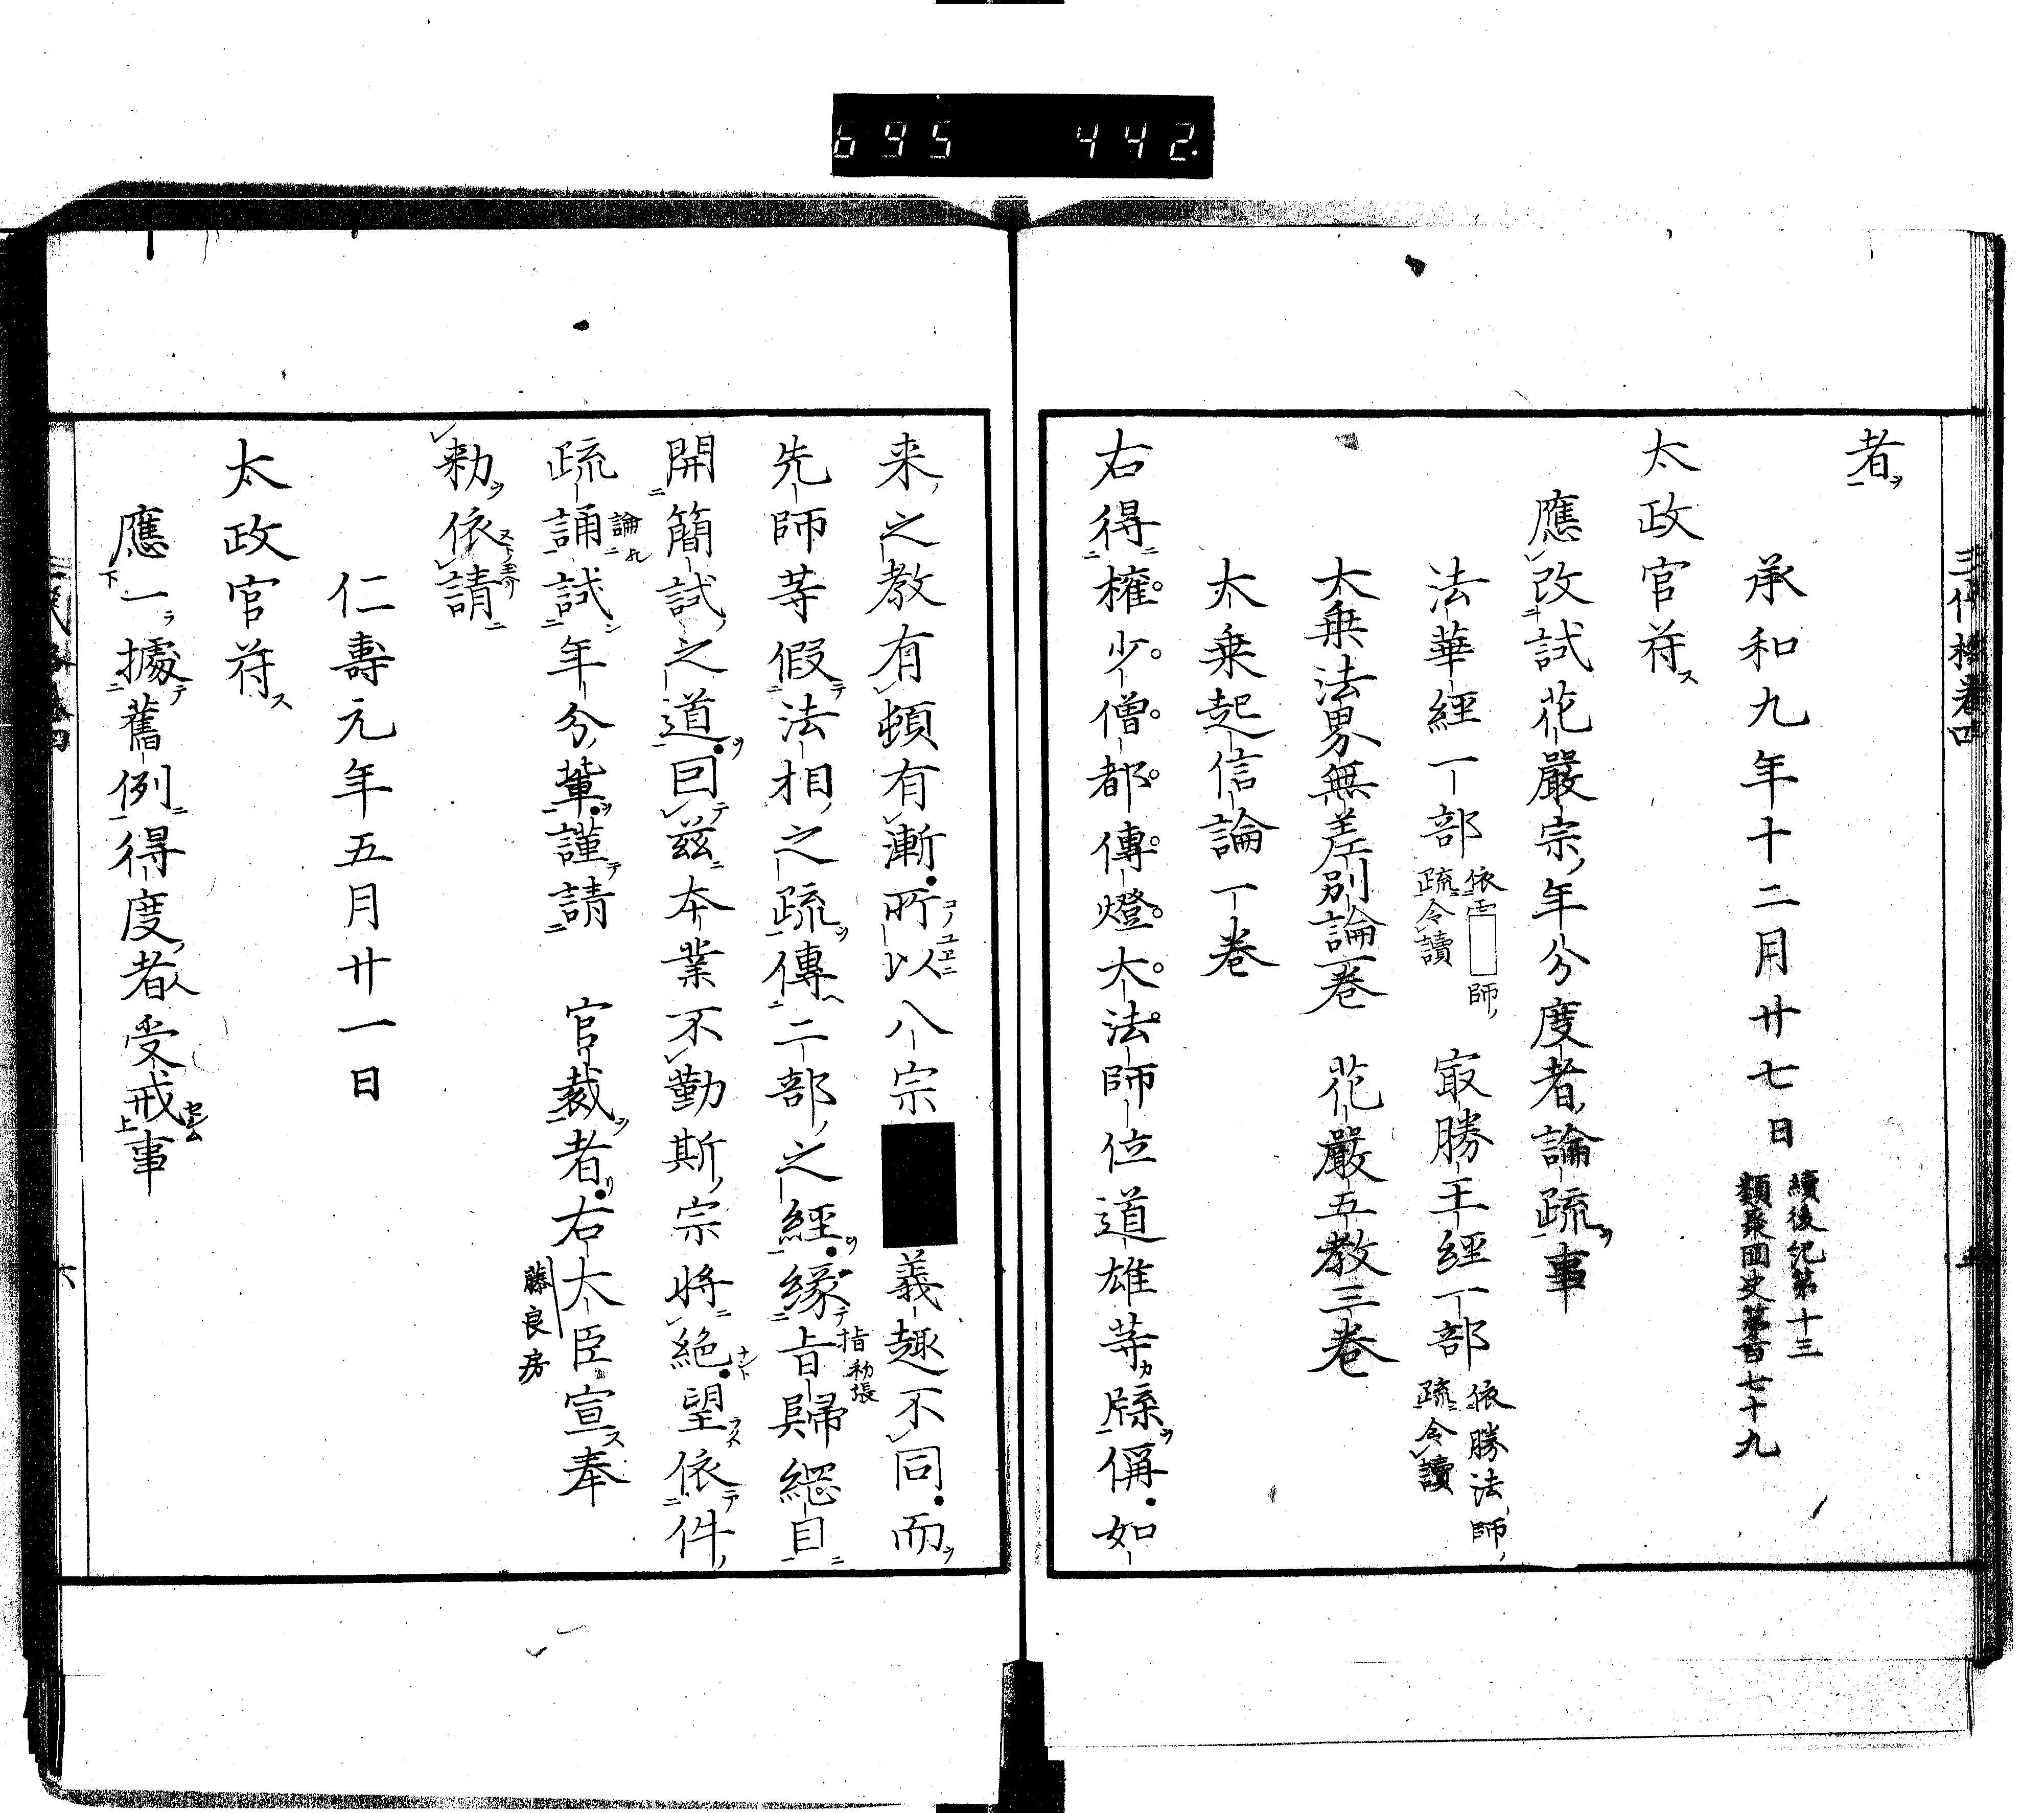 695 442.
三代格卷四
者
承和九年十二月廿七日 續後紀第十三 類聚國史第百七十九
太政官符
應改試花嚴宗年分度者論疏事
法華經一部 依 師疏令讀 最勝王經一部 依勝法師疏令讀
大乗法界無差別論一卷 花嚴五教三卷
大乗起信論一卷
右得權少僧都傳燈大法師位道雄等牒偁如
来之教有頓有漸所以八宗 義趣不同而
先師等假法相之疏傳二部之經緣旨歸綱目
開簡試之道因茲本業不勤斯宗將絶望依件
疏誦試年分輩謹請 官裁者右大臣宣奉
藤良房
勅依請
仁壽元年五月廿一日
太政官符
應一據舊例得度者受戒事
六